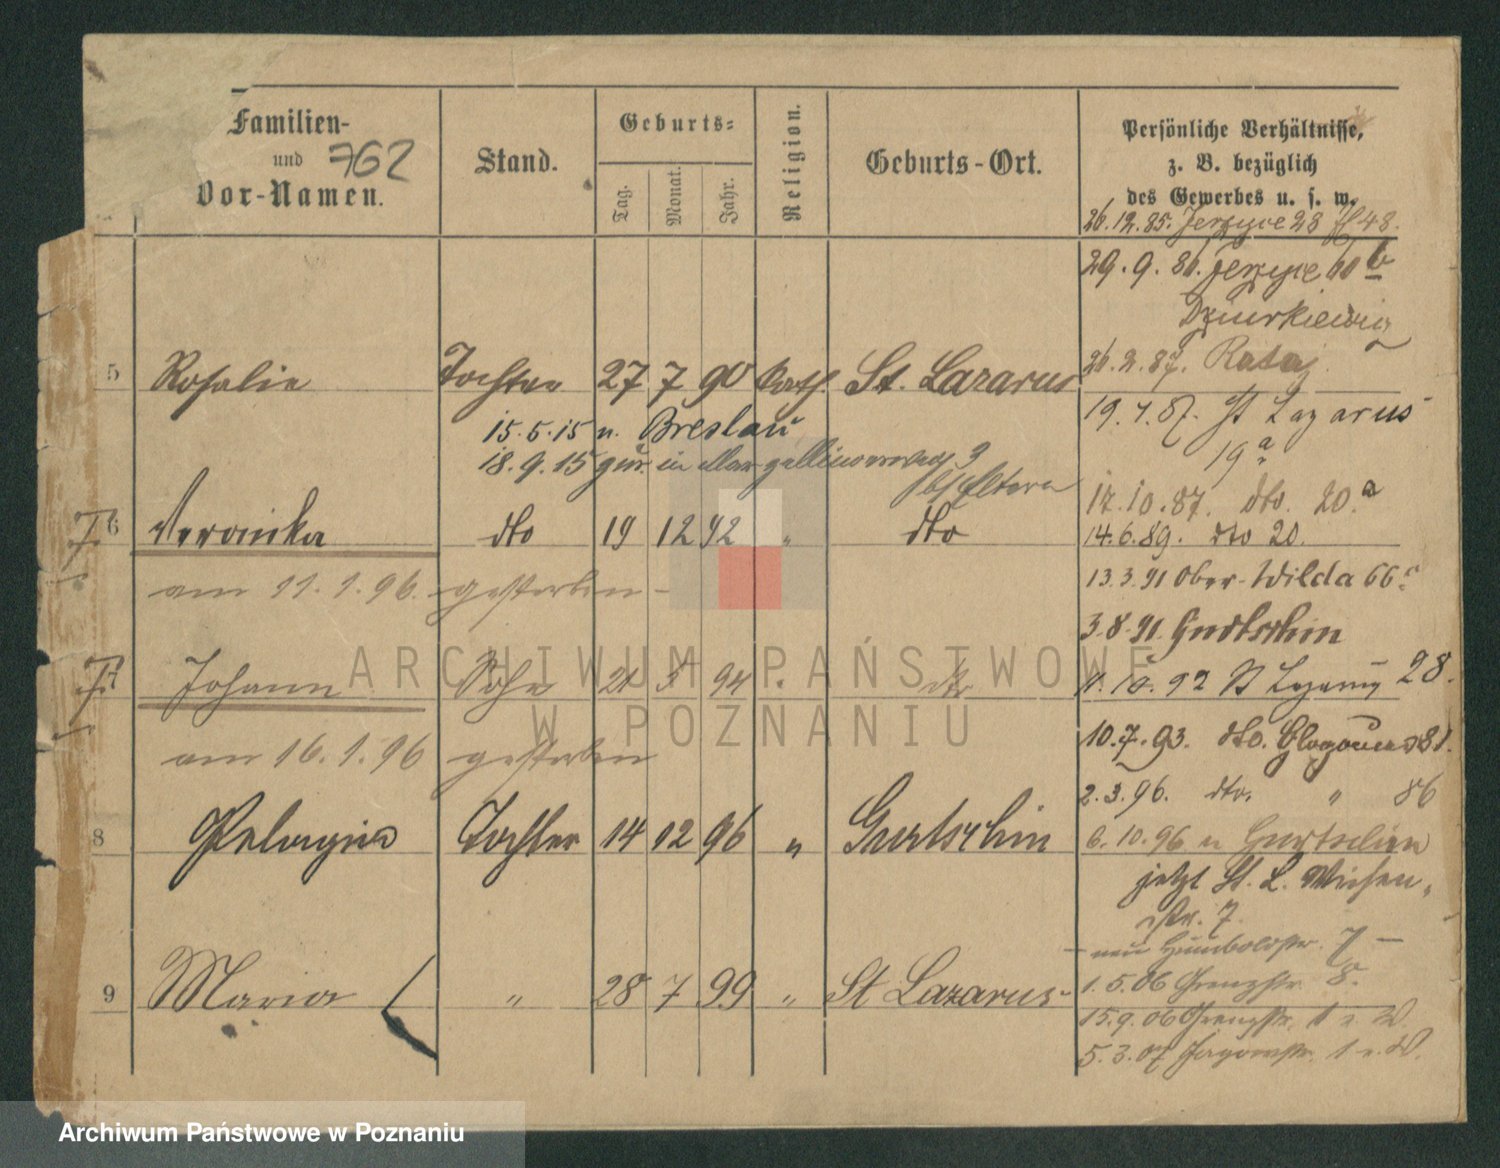 Familien-
und 762
Vor-Namen.
Stand.
Geburts-
Tag.
Monat.
Jahr.
Religion.
Geburts-Ort.
Persönliche Verhältnisse,
z. B. bezüglich
des Gewerbes u. s. w.
26.12.85. Jerzyce 28 48.
29.9.86. Jerzyce
26.2.87. Rataj
5 Rosalie Tochter 27 7 90 Kath. St. Lazarus
19. 87. St Lazarus
19 a
15.5.15 n. Breslau
18.9.15 zur. in
b/ Eltern
17.10.87. dto. 20.a
6 Veronika dto 19 12 92 " dto
14.6.89. dto 20.
am 11.1.96. gestorben -
13.3.91 Ober-Wilda 66
3.8.91. Gurtschin
7 Johann Sohn 21 5 94 " dto
11.10.92 St Lazarus 28.
am 16.1.96 gestorben
10.7.93. dto. 81.
2.3.96. dto. " 86
8 Pelagia Tochter 14 12 96 " Gurtschin
6.10.96 n Gurtschin
jetzt St. L. Wiesen-
str. 7.
- neu Humboldtstr. 7 -
9 Maria " 28 7 99 " St Lazarus
1.5.06 Grenzstr. 8.
15.9.06 Grenzstr. 1
5.3.07 Jagowstr. 1
ARCHIWUM PAŃSTWOWE
W POZNANIU
Archiwum Państwowe w Poznaniu